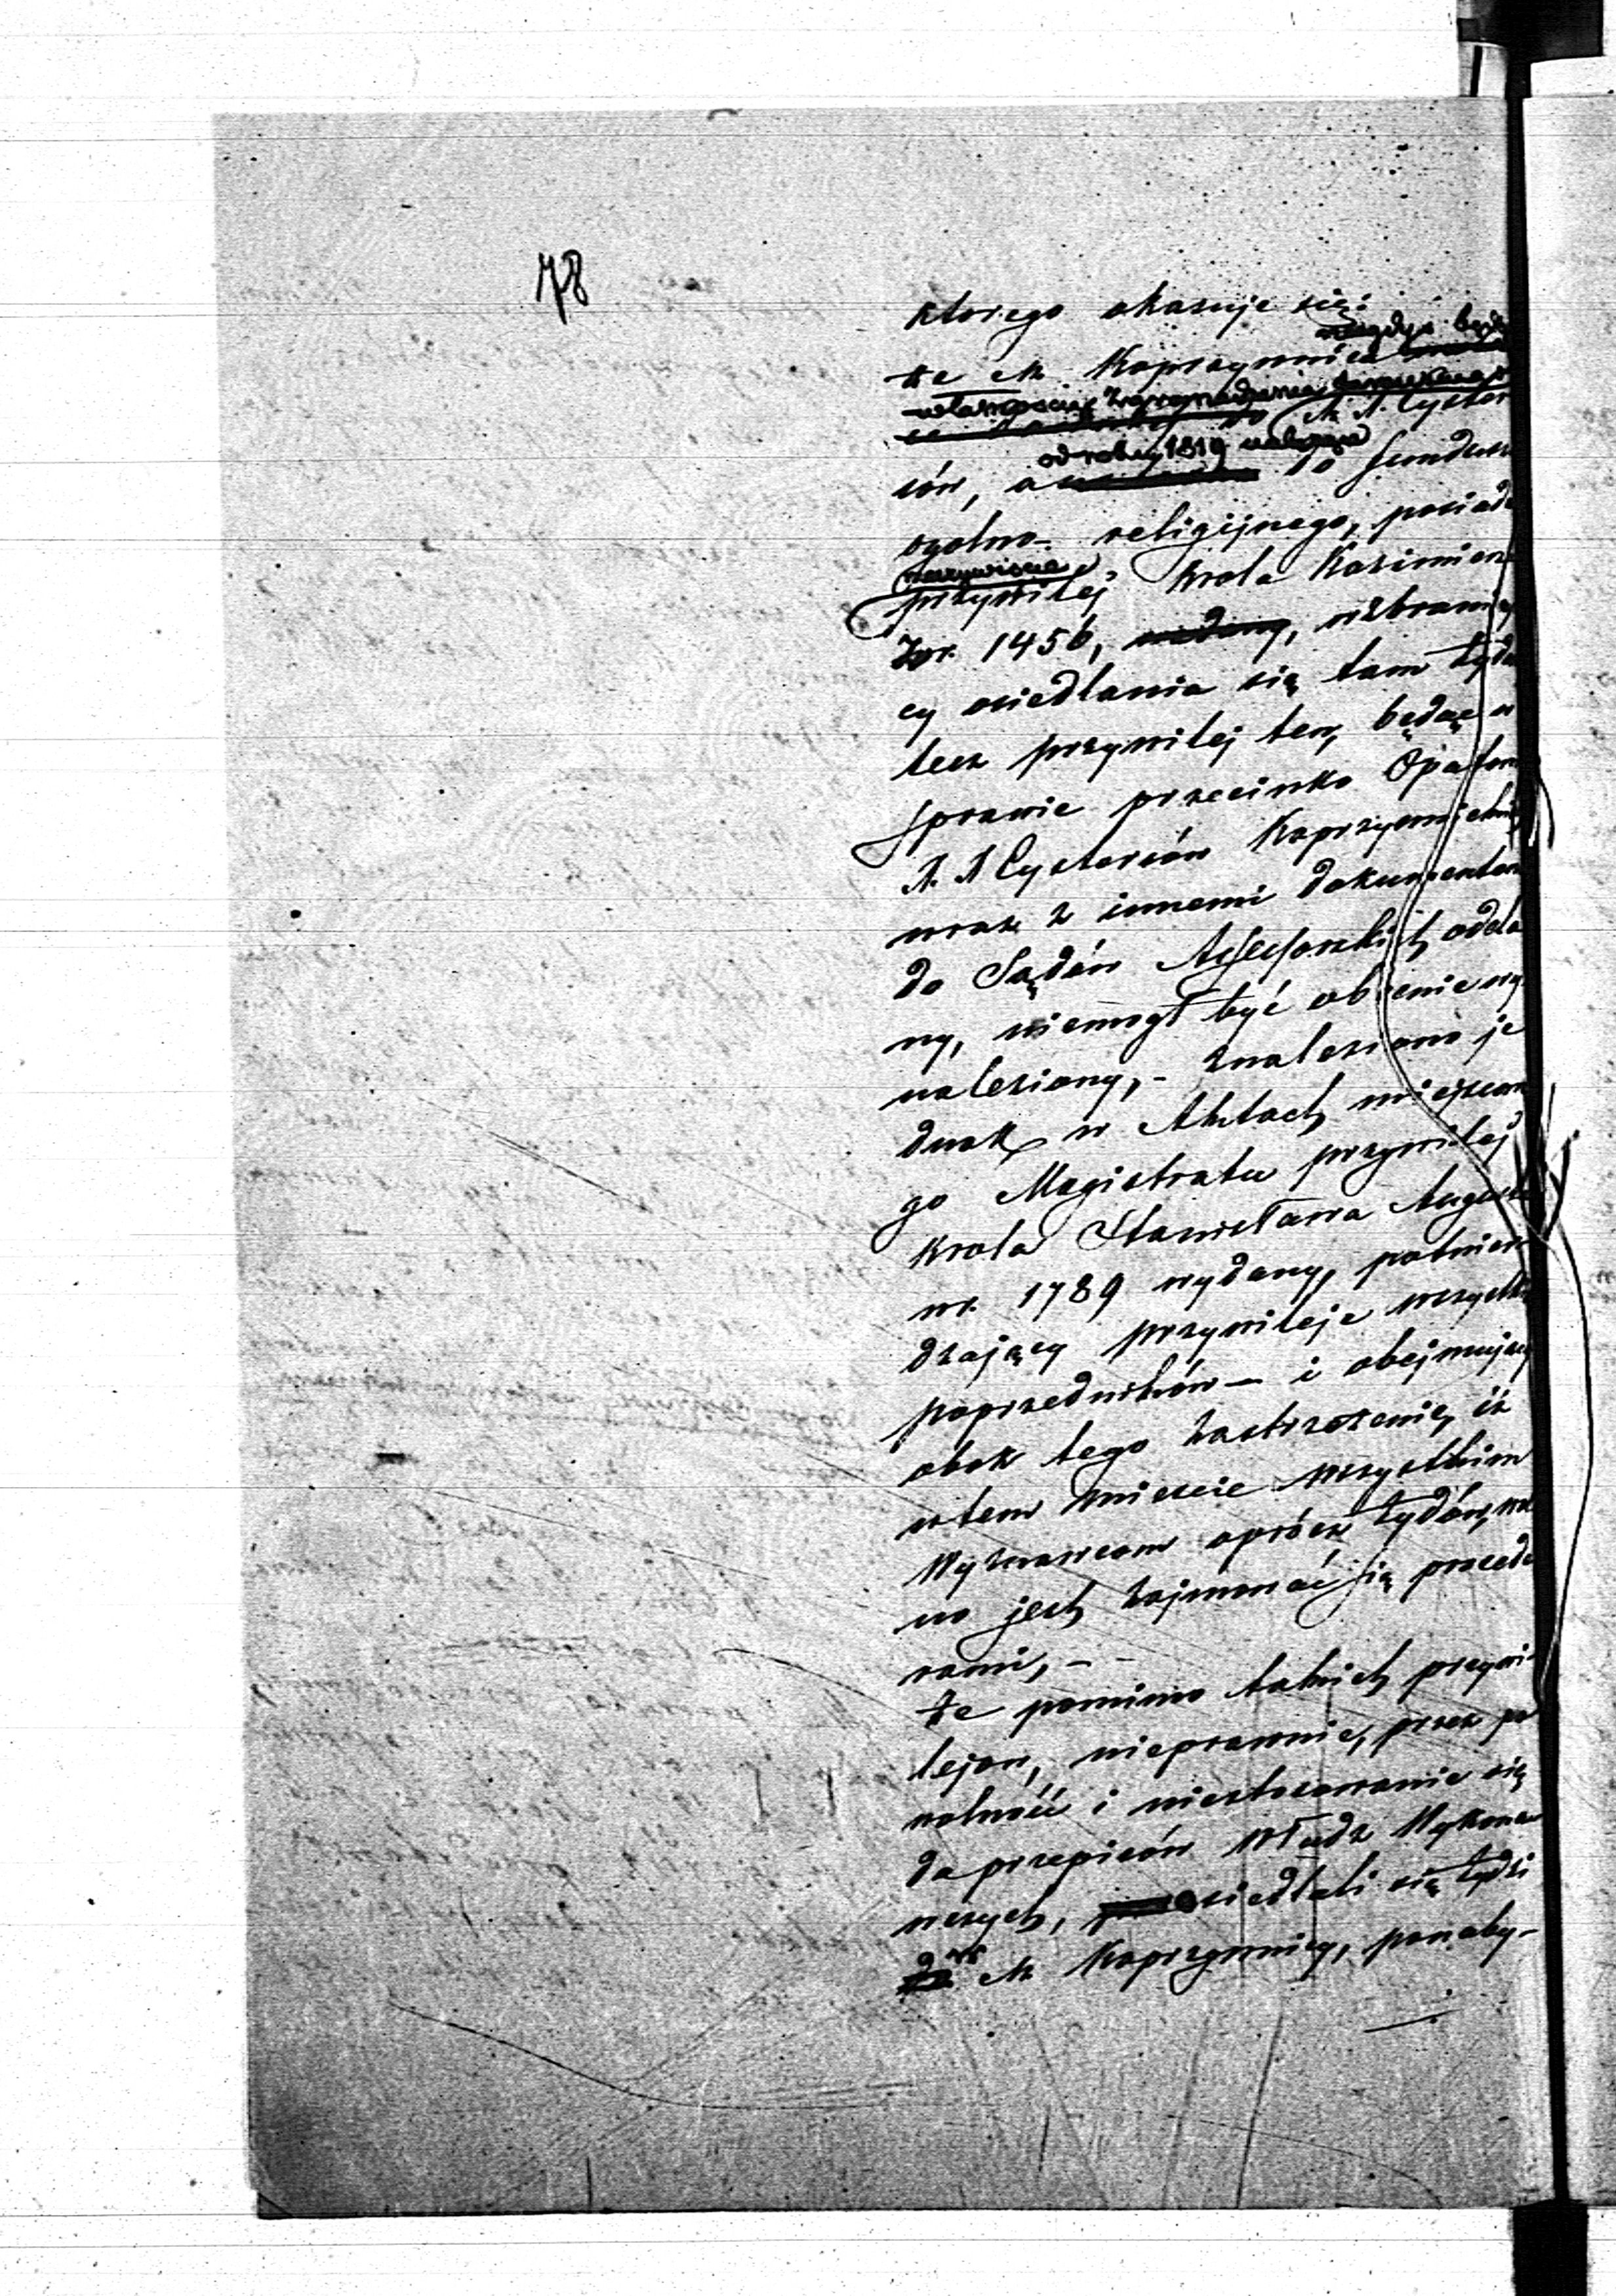 78
ktorego okazuje się:
niegdyś będ
że M. Koprzywnica
własnością Zgromadzenia
X. X. Cyster
od roku 1819 należąca
sów, a do fundusz
ogolno- religijnego, posiada
rzeczywiście
przywilej Krola Kazimierz
z r. 1456, nadany, wzbrania
cy osiedlania się tam Żydo
lecz przywilej ten, będąc w
sprawie przeciwko Opatow
X. X Cystersów Koprzywnickie
wraz z innemi dokumentam
do Sądów Assessorskich odda
ny, niemogł być obecnie wy
naleziony, - znaleziono je
dnak w Aktach miejscow
go Magistratu przywilej
Krola Stanisława August
w r. 1789 wydany, potwier
dzający przywileje wszystki
poprzedników – i obejmujący
obok tego zastrzeżenie, iż
w tem mieście wszystkim
Wyznawcom oprócz Żydów, wol
no jest zajmować się proced
rami, -
że pomimo takich przywi-
lejow, nieprawnie, przez po
wolność i niestosowanie się
do przepisów Władz Wykonaw
wczych, osiedlali się Żydzi
w M. Koprzywnicy, ponaby-